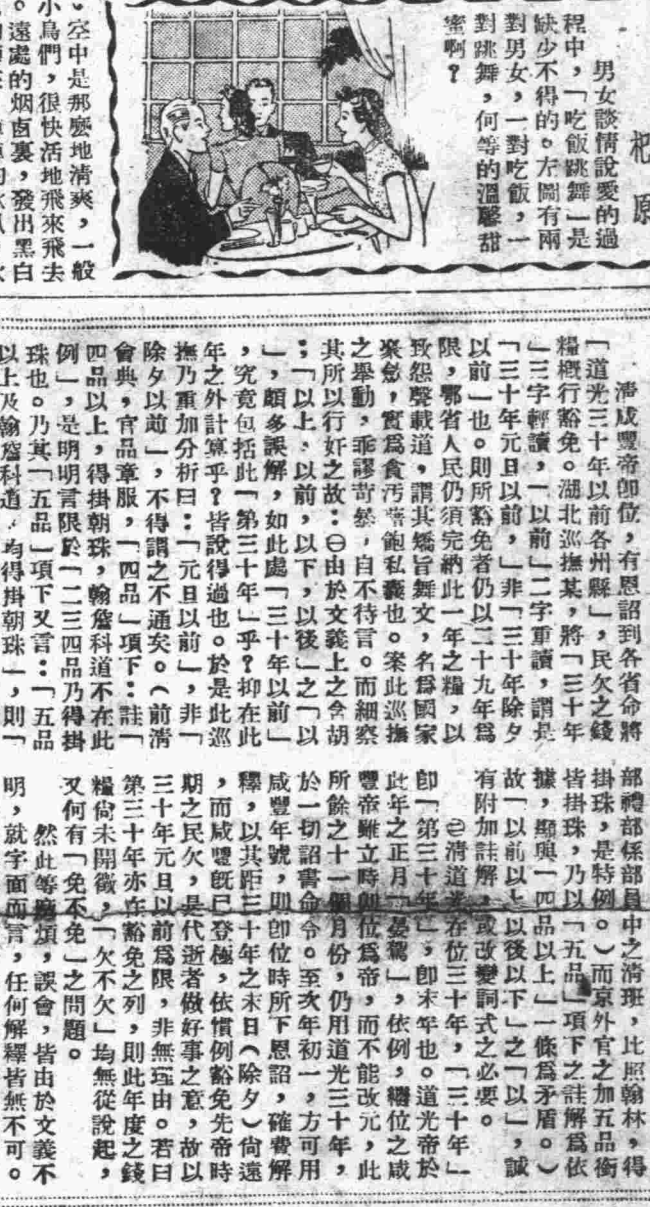 杞原
男女談情說愛的過
程中，「吃飯跳舞」是
缺少不得的。左圖有兩
對男女，一對吃飯，一
對跳舞，何等的溫馨甜
蜜啊？
。空中是那麼地清爽，一般
小鳥們，很快活地飛來飛去
。遠處的烟囱裏，發出黑白
清咸豐帝卽位，有恩詔到各省命將
「道光三十年以前各州縣」，民欠之錢
糧槪行豁免。湖北巡撫某，將「三十年
」三字輕讀，「以前」二字重讀，謂是
「三十年元旦以前，」非「三十年除夕
以前」也。則所豁免者仍以二十九年爲
限，鄂省人民仍須完納此一年之糧，以
致怨聲載道，謂其矯旨舞文，名爲國家
聚斂，實爲貪污營飽私囊也。案此巡撫
之舉動，乖謬苛暴，自不待言。而細察
其所以行奸之故：㊀由於文義上之含胡
；「以上、以前，以下，以後」之「以
」，頗多誤解，如此處「三十年以前」
，究竟包括此「第三十年」乎？抑在此
年之外計算乎？皆說得過也。於是此巡
撫乃重加分析曰：「元旦以前」，非「
除夕以前」，不得謂之不通矣。（前清
會典，官品章服，「四品」項下：註「
四品以上，得掛朝珠，翰詹科道不在此
例」，是明明言限於「一二三四品乃得掛
珠也。乃其「五品」項下又言：「五品
以上及翰詹科道，均得掛朝珠」，則「
部禮部係部員中之清班，比照翰林，得
掛珠，是特例。）而京外官之加五品銜
皆掛珠，乃以「五品」項下之註解爲依
據，顯與「四品以上」一條爲矛盾。）
故「以前以上以後以下」之「以」，誠
有附加註解，或改變詞式之必要。
㊁清道光在位三十年，「三十年」
卽「第三十年」，卽末年也。道光帝於
此年之正月「晏駕」，依例，繼位之咸
豐帝雖立時卽位爲帝，而不能改元，此
所餘之十一個月份，仍用道光三十年，
於一切詔書命令。至次年初一，方可用
咸豐年號，則卽位時所下恩詔，確費解
釋，以其距三十年之末日（除夕）尙遠
，而咸豐旣已登極，依慣例豁免先帝時
期之民欠，是代逝者做好事之意，故以
三十年元旦以前爲限，非無理由。若曰
第三十年亦在豁免之列，則此年度之錢
糧尙未開徵，「欠不欠」均無從說起，
又何有「免不免」之問題。
然此等麻煩，誤會，皆由於文義不
明，就字面而言，任何解釋皆無不可。